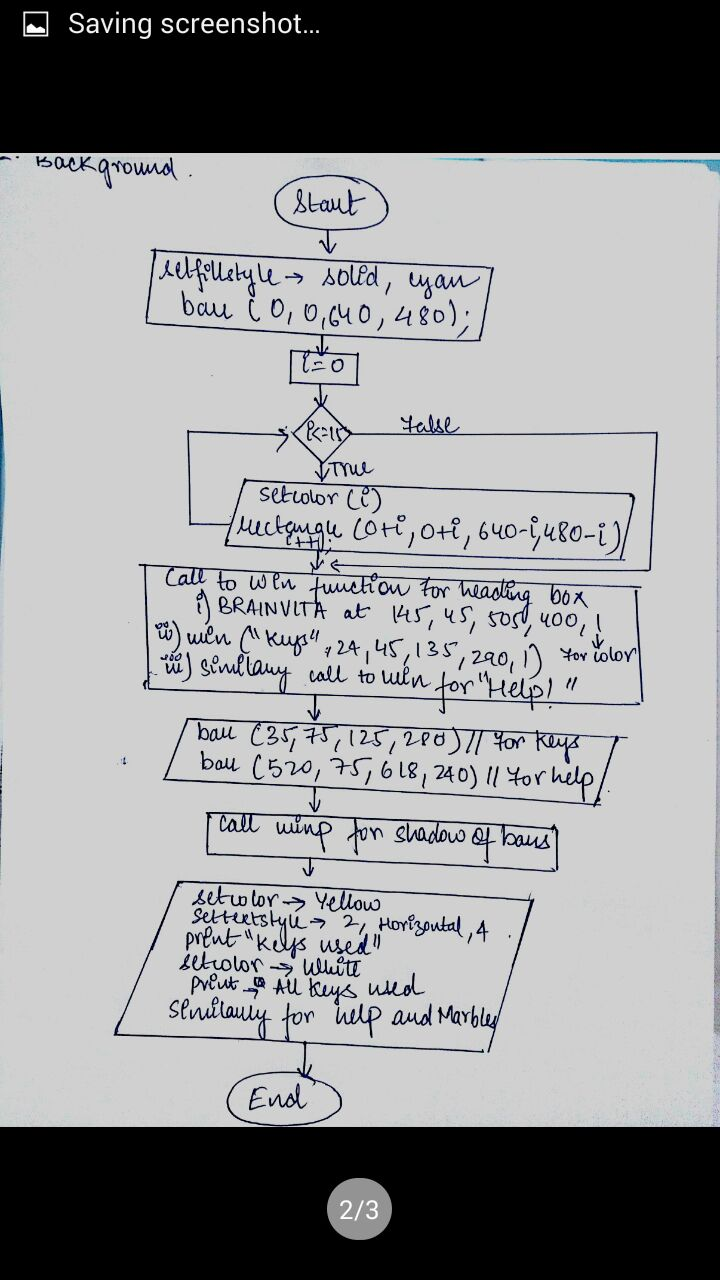 Saving screenshot...
Background.
Start
setfillstyle → solid, cyan
bar (0, 0, 640, 480);
i=0
i<=15
False
True
setcolor (i)
rectangle (0+i, 0+i, 640-i, 480-i)
i++;
Call to win function for heading box
i) BRAINVITA at 145, 45, 505, 400, 1
ii) win ("Keys", 24, 45, 135, 290, 1) for color
iii) Similary call to win for "Help!"
bar (35, 75, 125, 280) // for keys
bar (520, 75, 618, 240) // for help
Call winp for shadow of bars
setcolor → Yellow
settextstyle → 2, Horizontal, 4
print "Keys used"
setcolor → White
print → All Keys used
Similarly for help and Marbles
End
2/3